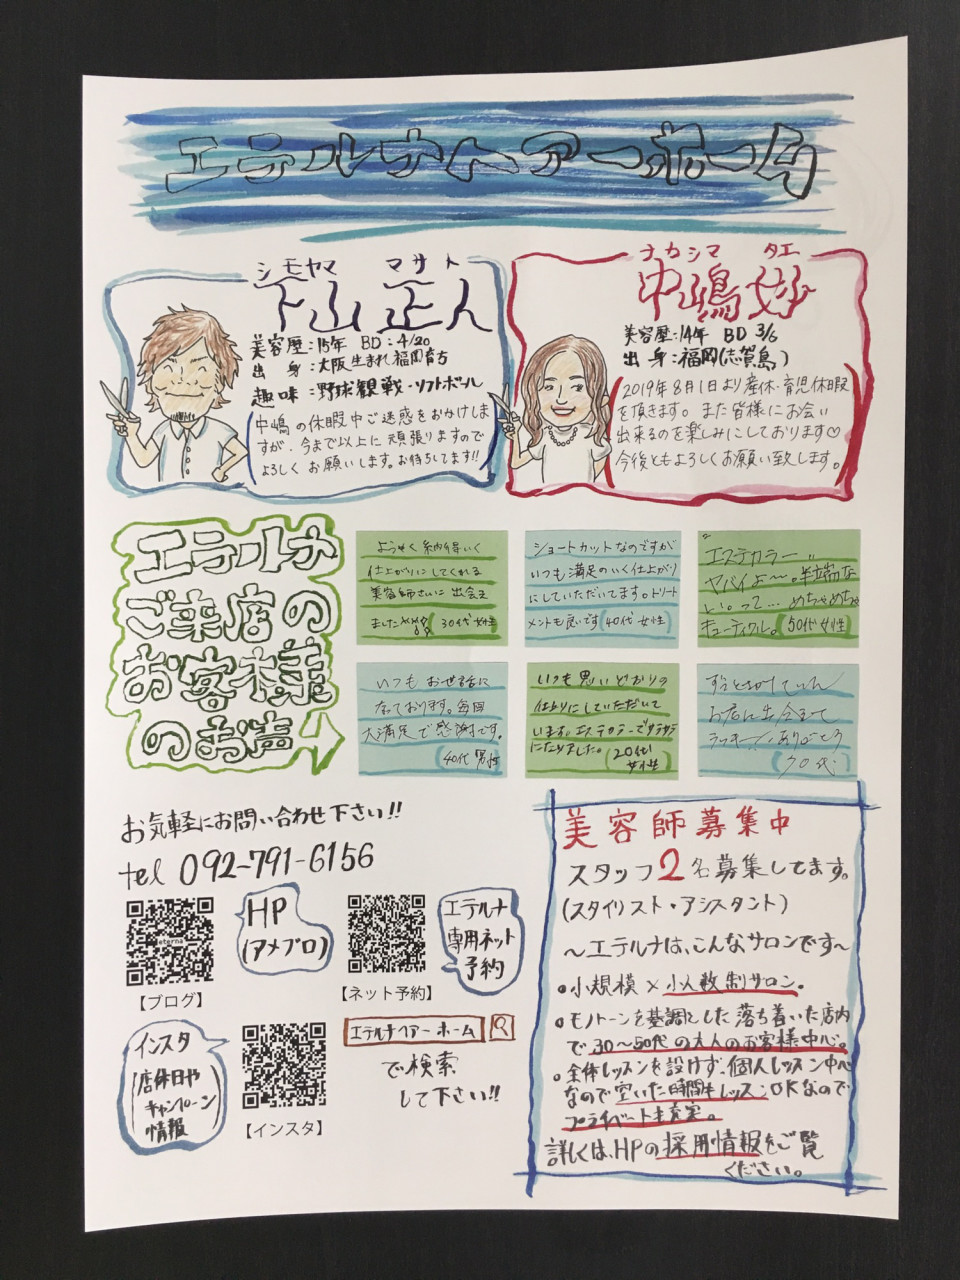 エテルナヘアーホーム
シモヤマ マサト
下山 正人
美容歴：15年 BD：4/20
出 身：大阪生まれ福岡育ち
趣味：野球観戦・ソフトボール
中嶋の休暇中ご迷惑をおかけしま
すが、今まで以上に頑張りますので
よろしくお願いします。お待ちしてます!!
ナカシマ タエ
中嶋 妙
美容歴：14年 BD 3/6
出 身：福岡(志賀島)
2019年8月1日より産休・育児休暇
を頂きます。また皆様にお会い
出来るのを楽しみにしております♡
今後ともよろしくお願い致します。
エテルナ
ご来店の
お客様
のお声
ようやく納得いく
仕上がりにしてくれる
美容師さんに出会え
ました (30代 女性)
ショートカットなのですが
いつも満足のいく仕上がり
にしていただいてます。トリート
メントも良いです(40代 女性)
エステカラー
ヤバイよ〜。半端な
い。って… めちゃめちゃ
キューティクル。(50代 女性)
いつもお世話に
なっております。毎回
大満足で感謝です。
(40代 男性)
いつも思いどおりの
仕上りにしていただいて
います。エステカラーでサラサラ
になりました。(20代 女性)
お店に出会えて
ラッキー ありがとう
お気軽にお問い合わせ下さい!!
tel 092-791-6156
eterna
HP
(アメブロ)
エテルナ
専用ネット
予約
【ブログ】
【ネット予約】
インスタ
店休日や
キャンペーン
情報
【インスタ】
エテルナヘアーホーム
で検索
して下さい!!
美容師募集中
スタッフ2名募集してます。
(スタイリスト・アシスタント)
〜エテルナは、こんなサロンです〜
●小規模×少人数制サロン。
●モノトーンを基調とした落ち着いた店内
で30〜50代の大人のお客様中心。
●全体レッスンを設けず、個人レッスン中心
なので空いた時間もレッスンOKなので
プライベートも充実。
詳しくは、HPの採用情報をご覧
ください。